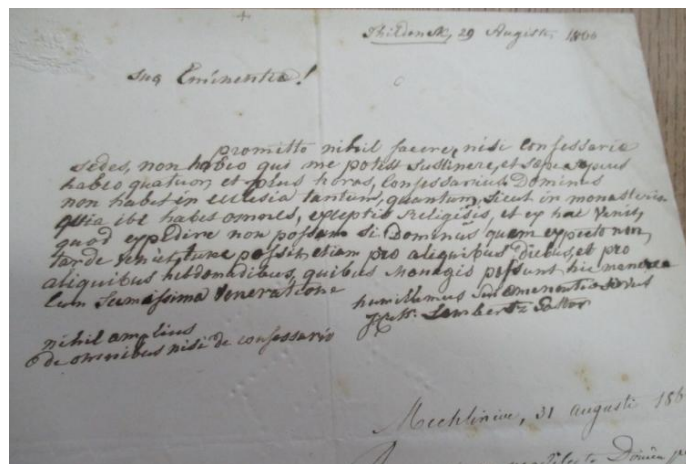 Thildonck, 29 Augusti, 1860
Sua Eminentia!
promitto nihil facere, nisi Confessario
sedes, non habeo qui me potest Sustinere, et sepe opus
habeo quatuor et plus horas, Confessarius Dominus
non habet in ecclesia tantum, quantum, sicut in monasterio
quia ibi habet omnes, exceptis Religiosis, et ex hac venit,
quod expedire non possum si Dominus quem expecto non
tarde veniet, tunc possit, etiam pro aliquibus diebus, et pro
aliquibus hebdomadibus, quibus Monagis possunt hic manere
Cum Sumissima Veneratione
humillimus
Lambertz Pastor
nihil amplius
de omnibus nisi de confessario
Mechliniae, 31 augusti 186